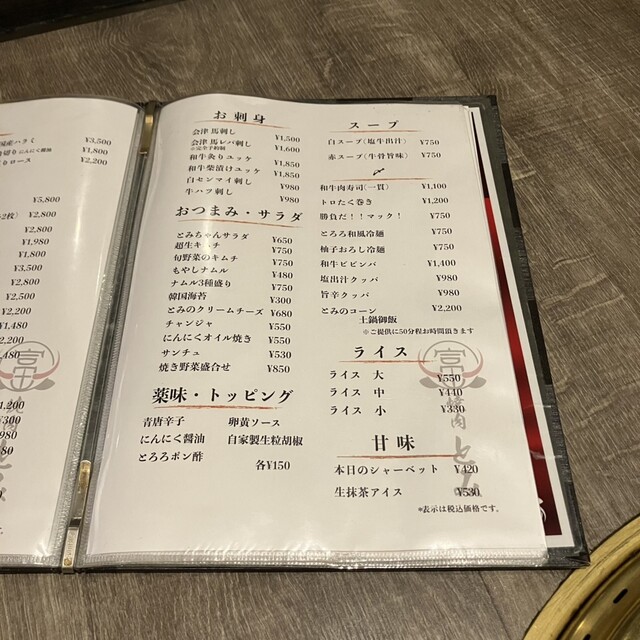 ¥3,500
¥1,800
¥2,200
¥5,800
¥2,800
¥2,800
¥1,980
¥1,800
¥3,500
¥2,800
お刺身
会津 馬刺し ¥1,500
会津 馬レバ刺し ¥1,600
※完全予約制
和牛炙りユッケ ¥1,650
和牛柴漬けユッケ ¥1,860
白センマイ刺し ¥980
牛ハツ刺し ¥980
おつまみ・サラダ
とみちゃんサラダ ¥650
超生キムチ ¥750
旬野菜のキムチ ¥750
もやしナムル ¥480
ナムル3種盛り ¥750
韓国海苔 ¥300
とみのクリームチーズ ¥680
チャンジャ ¥550
にんにくオイル焼き ¥550
サンチュ ¥530
焼き野菜盛合せ ¥850
薬味・トッピング
青唐辛子 卵黄ソース
にんにく醤油 自家製生粒胡椒
とろろポン酢 各¥150
スープ
白スープ(塩牛出汁) ¥750
赤スープ(牛骨旨味) ¥750
〆
和牛肉寿司(一貫) ¥1,100
トロたく巻き ¥1,200
勝負だ!!マック! ¥750
とろろ和風冷麺 ¥750
柚子おろし冷麺 ¥750
和牛ビビンバ ¥1,400
塩出汁クッパ ¥980
旨辛クッパ ¥980
とみのコーン ¥2,200
土鍋御飯
※ご提供に50分程お時間頂きます
ライス
ライス 大 ¥550
ライス 中 ¥440
ライス 小 ¥330
甘味
本日のシャーベット ¥420
生抹茶アイス ¥530
※表示は税込価格です。